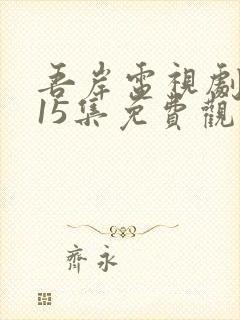 吾岸電視劇
15集免費觀
齊永